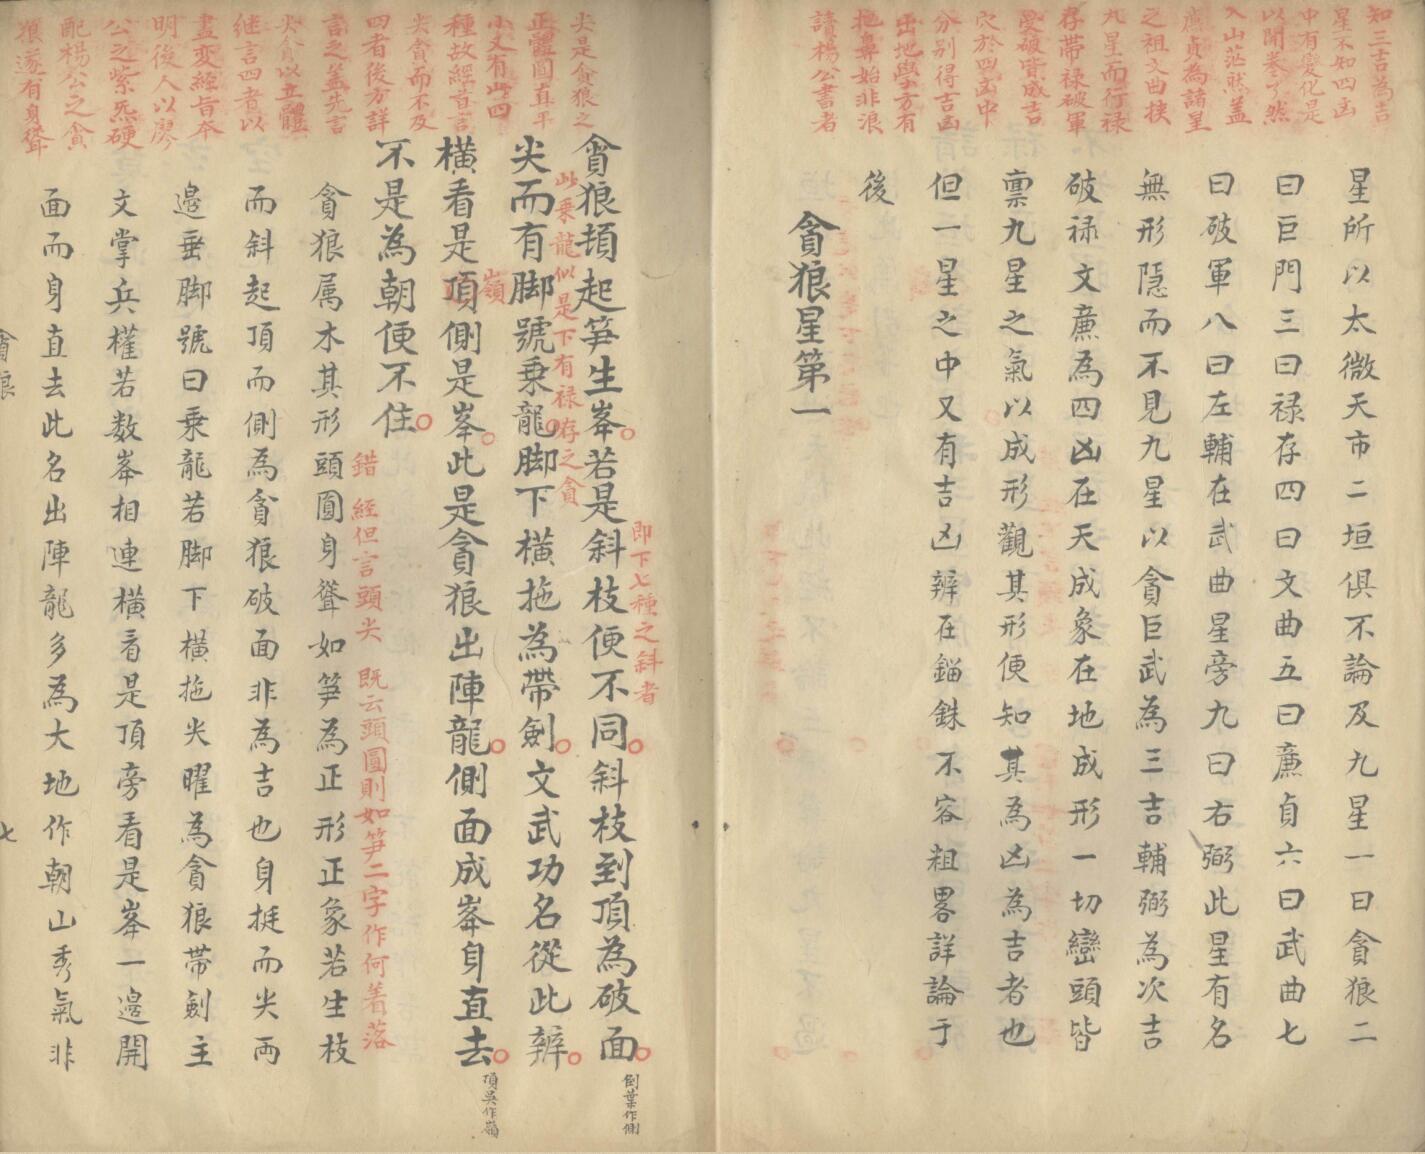 知三吉為吉
星不知四凶
中有變化是
以開卷了然
入山茫然蓋
廉貞為諸星
之祖文曲挾
九星而行祿
存帶祿破軍
變破皆成吉
穴於四凶中
分別得吉凶
出地學方有
把鼻始非浪
讀楊公書者
星所以太微天市二垣俱不論及九星一曰貪狼二
曰巨門三曰祿存四曰文曲五曰廉貞六曰武曲七
曰破軍八曰左輔在武曲星旁九曰右弼此星有名
無形隱而不見九星以貪巨武為三吉輔弼為次吉
破祿文廉為四凶在天成象在地成形一切巒頭皆
禀九星之氣以成形觀其形便知其為凶為吉者也
但一星之中又有吉凶辨在錙銖不容粗畧詳論于
後
貪狼星第一
尖是貪狼之
正體圓直平
小文有此四
種故經言言
尖貪而不及
四者後方詳
言之蓋先言
尖貪以立體
継言四者以
盡変經旨本
明後人以廖
公之紫炁硬
配楊公之貪
狼遂有身聳
貪狼頓起笋生峯若是斜枝便不同斜枝到頂為破面
倒葉作側
即下七種之斜者
尖而有脚號乗龍脚下横拖為帶劍文武功名從此辨
此乗龍似是下有祿存之貪
横看是頂側是峯此是貪狼出陣龍側面成峯身直去
嶺
頂吳作嶺
不是為朝便不住
錯 經但言頭尖 既云頭圓則如笋二字作何着落
貪狼属木其形頭圓身聳如笋為正形正象若生枝
而斜起頂而側為貪狼破面非為吉也身挺而尖两
邉垂脚號曰乗龍若脚下横拖尖曜為貪狼帶劍主
文掌兵權若数峯相連横看是頂旁看是峯一邉開
面而身直去此名出陣龍多為大地作朝山秀氣非
貪狼
七